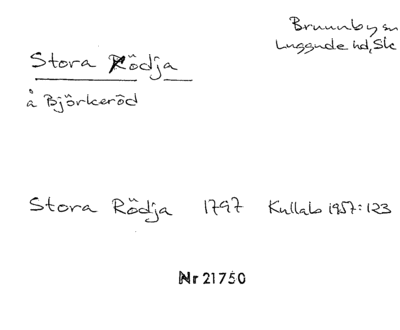 Brunnby sn
Luggude hd, Sk
Stora Rödja
å Björkeröd
Stora Rödja 1797 Kullabo 1957:123
Nr 21750